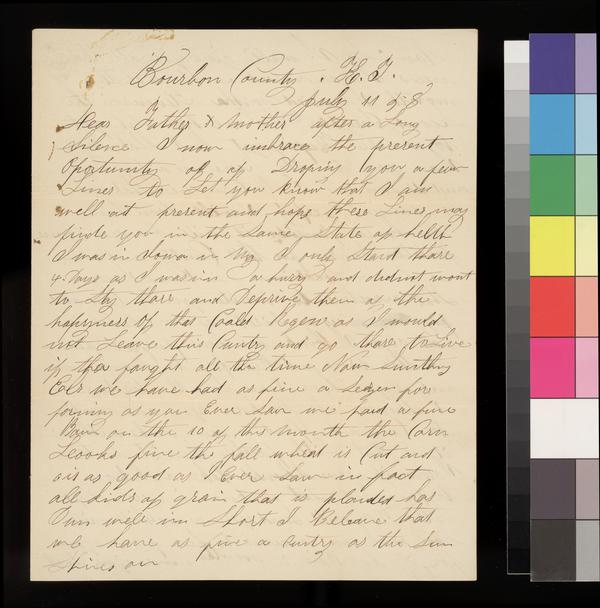 Bourbon County . K. T.
July 11 58
Dear Father & Mother after a Long
Silence I now imbrace the present
Oportunity of of Droping you a few
Lines to Let you know that I am
well at present and hope these Lines may
finde you in the Same State of helth
I was in Iowa in I only Staid thare
4 Days as I was in a hurry and did not want
to Sty thare and Deprive them of the
happyness of that Coald Regen as I would
not Leave this Cuntry and go thare to Live
if tha faught all the time Now Sumthing
Els we have had as fine a Sezen for
farming as you Ever Saw we had a fine
Rain on the 10 of this month the Corn
Loooks fine the fall wheat is Cut and
is as good as I Ever Saw in fact
all kinds of grain that is planted has
Dun well in Short I Beleave that
we have as fine a cuntry as the Sun
Shines on